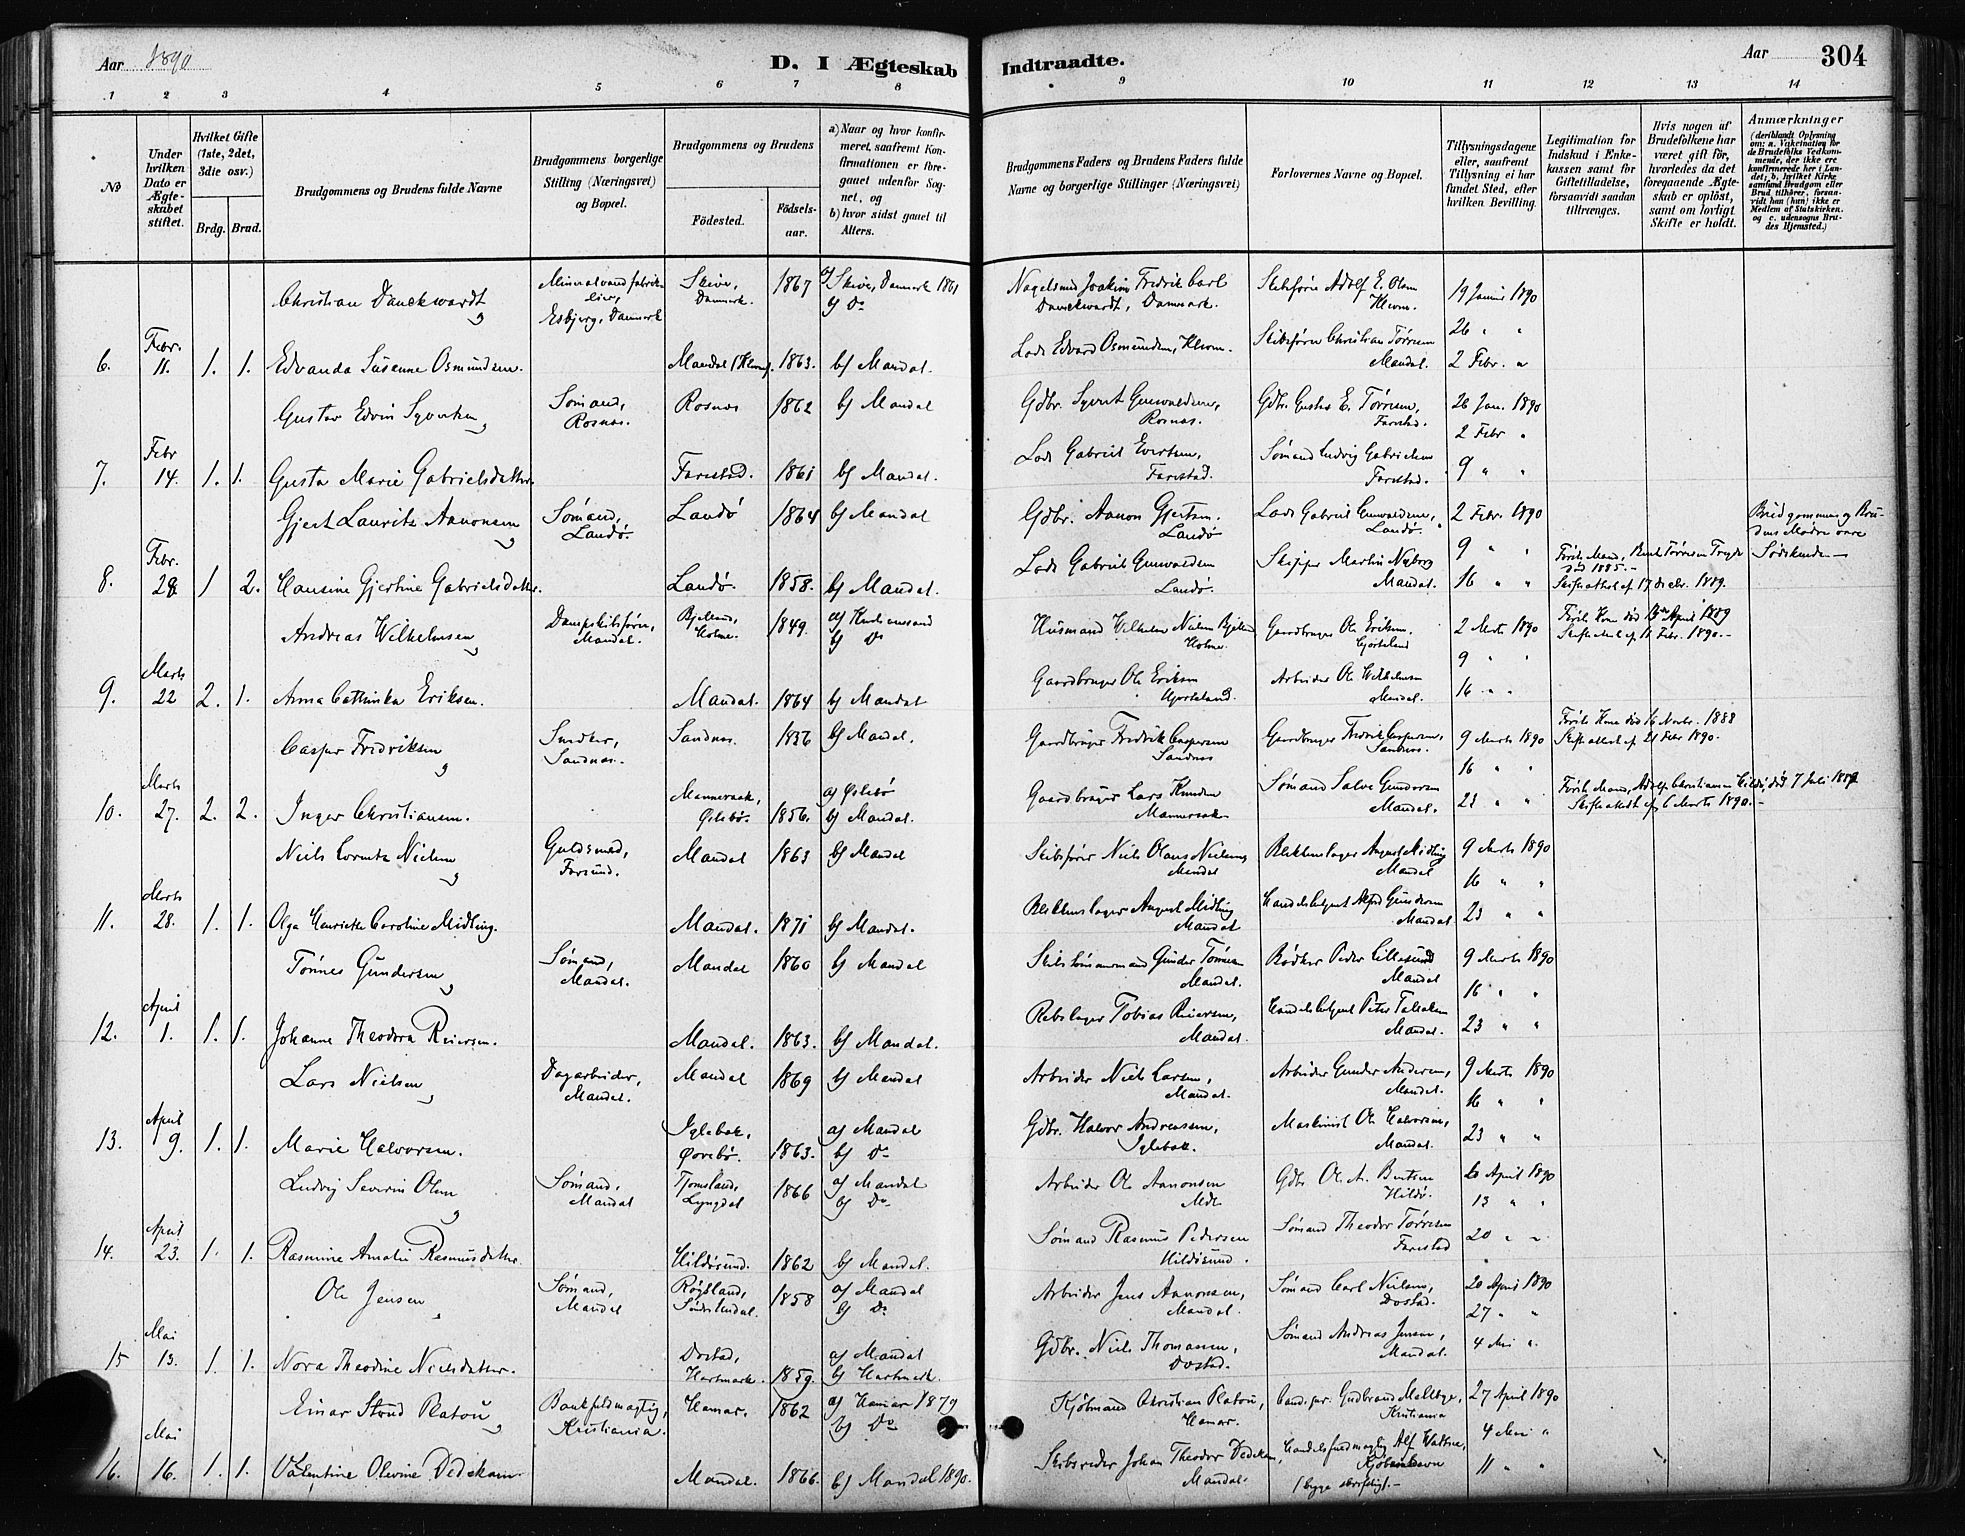 Aar 1890
D. I Ægteskab Indtraadte.
Aar
304
1 2 3 4 5 6 7 8 9 10 11 12 13 14
No
Under hvilken Dato er Ægteskabet stiftet.
Hvilket Gifte (1ste, 2det, 3die osv.)
Brdg. Brud.
Brudgommens og Brudens fulde Navne
Brudgommens borgerlige Stilling (Næringsvei) og Bopæl.
Brudgommens og Brudens
Födested.
Födsels-aar.
a) Naar og hvor konfirmeret, saafremt Konfirmationen er foregaaet udenför Sognet, og
b) hvor sidst gaaet til Alters.
Brudgommens Faders og Brudens Faders fulde Navne og borgerlige Stillinger (Næringsvei)
Forlovernes Navne og Bopæl.
Tillysningsdagene eller, saafremt Tillysning ei har fundet Sted, efter hvilken Bevilling.
Legitimation for Indskud i Enkekassen samt for Giftetilladelse, forsaavidt saadan tiltrænges.
Hvis nogen af Brudefolkene har været gift för, hvorledes da det foregaaende Ægteskab er oplöst, samt om lovligt Skifte er holdt.
Anmærkninger
Christian Danckwardt
Esbjerg, Danmark
Skive, Danmark. 1867
a) Skive, Danmark 1881
b) Do
Joakim Fredrik Carl Danckwardt, Danmark.
Skibsförer Adolf E. Olsen
19 Januar 1890
26 " "
6. Febr. 11. 1. 1. Edvarda Susanne Osmundsen.
Mandal 1863. b) Mandal.
Lods Edvard Osmundsen,
Skibsförer Christian Törresen Mandal.
2 Febr. "
Gustav Edvin Syvertsen
Sömand, Rosnæs.
Rosnæs 1862 b) Mandal
Gdbr. Syvert Gunvaldsen, Rosnæs.
Gdbr. Gustav E. Törresen, Farestad.
26 Jan. 1890
2 Febr "
7. Febr 14. 1. 1. Gusta Marie Gabrielsdatter.
Farestad. 1861 b) Mandal.
Lods Gabriel Evertsen, Farestad.
Sömand Ludvig Gabrielsen Farestad.
9 " "
Gjert Lauritz Aanonsen
Sömand, Landö.
Landö 1864 b) Mandal
Gdbr. Aanon Gjertsen. Landö
Lods Gabriel Gunvaldsen, Landö.
2 Febr. 1890
Brudgommens og Brudens Mödre vare Södskende
9 " "
8. Febr. 28 1 2. Hansine Gjertine Gabrielsdatter.
Landö. 1858. b) Mandal.
Lods Gabriel Gunvaldsen Landö.
Skipper Martin Nyborg Mandal.
16 " "
död 1885.
Skifteattest af 17 Decbr. 1889.
Andreas Wilhelmsen
Dampskibsförer, Mandal.
Bjelland, Holme. 1849.
a) Kristianssand
b) Do
Husmand Vilhelm Nielsen Bjelland Holme.
Gaardbruger Ole Eriksen.
2 Marts 1890
Förste Kone död 13de April 1889
Skifteattest af 11 Febr. 1890.
9 " "
9. Marts 22 2. 1. Anna Cathinka Eriksen.
Mandal. 1864 b) Mandal
Gaardbruger Ole Eriksen
Arbeider Ole Wilhelmsen Mandal.
16 " "
Casper Fredriksen
Snedker, Sandnæs.
Sandnæs. 1836 b) Mandal.
Gaardbruger Fredrik Caspersen Sandnæs
Gaardbruger Fredrik Caspersen, Sandnæs.
9 Marts 1890
Förste Kone död 16 Novbr. 1888
Skifteattest af 21 Febr 1890.
16 " "
10. Marts 27. 2. 2. Inger Christiansen.
Mannersak, Öslebö. 1856.
a) Öslebö
b) Mandal.
Gaardbruger Lars Knudsen Mannersak
Sömand Salve Gundersen Mandal.
23 " "
Skifteattest af 6 Marts 1890.
Niels Lorentz Nielsen
Guldsmed, Farsund.
Mandal 1863 b) Mandal
Skibsförer Niels Olaus Nielsen Mandal
Blikkenslager August Midling Mandal
9 Marts 1890
16 " "
11. Marts 28. 1. 1. Olga Henriette Caroline Midling.
Mandal. 1871 b) Mandal.
Blikkenslager August Midling Mandal
Handelsbetjent Alfred Gundersen Mandal
23 " "
Tönnes Gundersen
Sömand, Mandal.
Mandal 1860 b) Mandal
Skibstömmermand Gunder Tönnesen Mandal.
Bödker Peder Lillesund Mandal
9 Marts 1890
16 " "
12. April 1. 1. 1. Johanne Theodora Reiersen.
Mandal. 1863. b) Mandal.
Rebslager Tobias Reiersen, Mandal.
Handelsbetjent Peter Tallaksen Mandal.
23 " "
Lars Nielsen
Dagarbeider, Mandal.
Mandal 1869 b) Mandal
Arbeider Niels Larsen, Mandal.
Arbeider Gunder Andersen, Mandal.
9 Marts 1890
16 " "
13. April 9. 1. 1. Marie Halvorsen.
Iglebæk, Övrebö. 1863.
a) Mandal
b) Do
Gdbr. Halvor Andreassen, Iglebæk.
Maskinist Ole Halvorsen, Mandal.
23 " "
Ludvig Severin Olsen
Sömand, Mandal
Tjomsland, Lyngdal 1866
a) Mandal
b) Do
Arbeider Ole Aanonsen Mdl.
Gdbr. Ole A. Berntsen Hildö.
6 April 1890
13 " "
14. April 23. 1. 1. Rasmine Amalie Rasmusdatter
Hildösund. 1862 b) Mandal.
Sömand Rasmus Pedersen Hildösund.
Sömand Theodor Törresen Farestad
20 " "
Ole Jensen
Sömand, Mandal
Röysland, Södr.Undal. 1858
a) Mandal
b) Do
Arbeider Jens Aanonsen, Mandal.
Sömand Carl Nielsen, Dostad.
20 April 1890
27 " "
15 Mai 13. 1. 1. Nora Theodine Nielsdatter.
Dostad, Hartmark. 1859.
a) Mandal
b) Hartmark.
Gdbr. Niels Thomassen, Dostad.
Sömand Andreas Jensen, Mandal.
4 Mai "
Einar Stoud Platou
Bankfuldmægtig, Kristiania.
Hamar. 1862
a) Hamar 1879
b) Do
Kjöbmand Christian Platou, Hamar.
Cand. jur. Gudbrand Maltbye, Kristiania
27 April 1890
4 Mai "
16. Mai 16. 1. 1. Valentine Olevine Dedekam
Mandal. 1866. b) Mandal 1890.
Skibsreder Johan Theodor Dedekam, Mandal.
Handelsfuldmægtig Alf Kjöbenhavn
(begge skriftligt.
11 " "